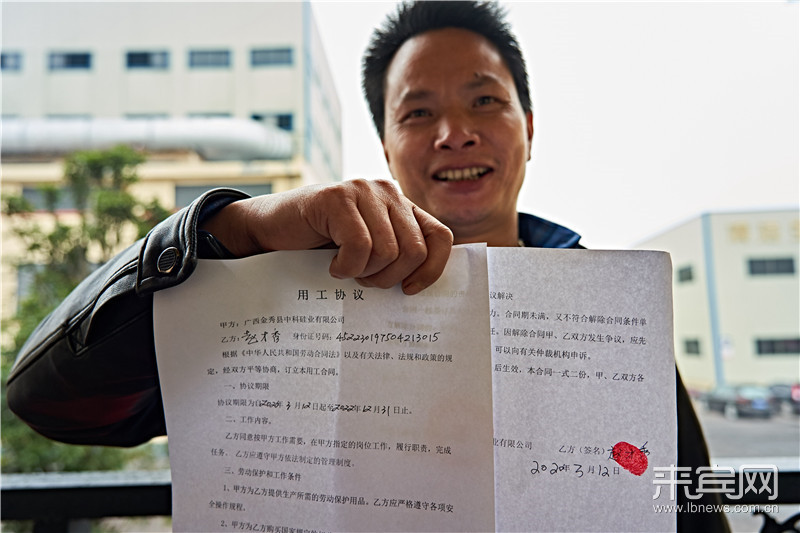 用工协议
甲方：广西金秀县中科硅业有限公司
乙方：赵才香 身份证号码：452230197504213015
根据《中华人民共和国劳动合同法》以及有关法律、法规和政策的规
定，经双方平等协商，订立本用工合同。
一、协议期限
协议期限为自2020年3月12日起至2022年12月31日止。
二、工作内容。
乙方同意按甲方工作需要，在甲方指定的岗位工作，履行职责，完成
任务。乙方应遵守甲方依法制定的管理制度。
三、劳动保护和工作条件
1、甲方为乙方提供生产所需的劳动保护用品。乙方应严格遵守各项安
全操作规程。
2、甲方为乙方购买国家规定的
议解决
方，合同期未满，又不符合解除合同条件单
任。因解除合同甲、乙双方发生争议，应先
可以向有关仲裁机构申诉。
后生效，本合同一式二份，甲、乙双方各
业有限公司 乙方（签名）
2020年3月12日
来宾网
www.lbnews.com.cn